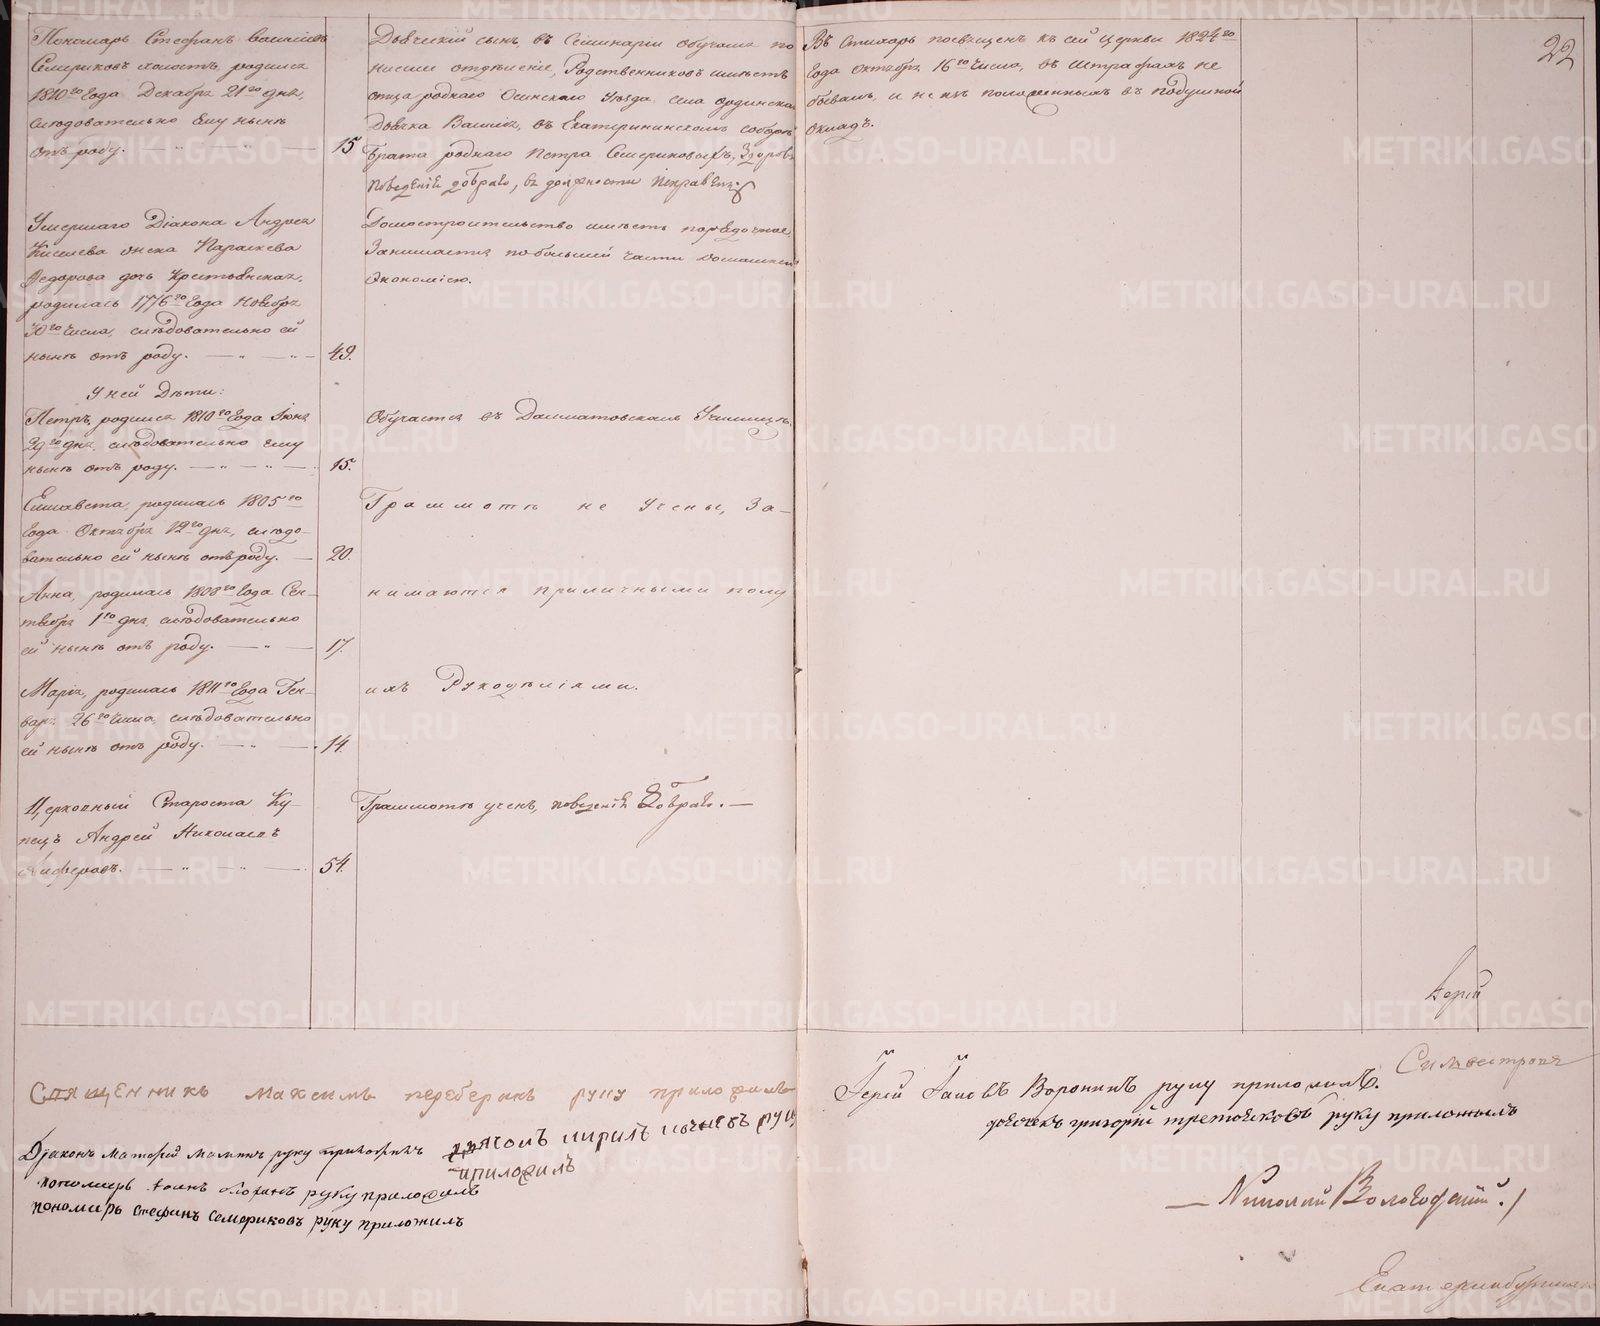 22
Пономарь Стефанъ Василіевъ
Семериковъ холостъ, родился
1810го Года Декабря 21го дня,
слѣдовательно Ему нынѣ
отъ роду. 15
Дьяческій сынъ, въ Семинаріи обучался по
низшее отдѣленіе, Родственниковъ имѣетъ
отца роднаго Осинскаго Уѣзда села Ординска
Дьячка Василія, въ Екатерининскомъ соборѣ
брата роднаго Петра Семериковыхъ, Здоровъ
поведенія добраго, въ должности исправенъ.
Въ Стихарь посвященъ къ сей церкви 1824го
Года Октября 16го Числа, въ штрафахъ не
бывалъ, и не въ положенныхъ въ подушной
окладъ.
Умершаго Діакона Андрея
Киселева жена Параскева
Федорова дочь Крестьянская,
родилась 1776го Года Ноября
30го Числа, слѣдовательно ей
нынѣ отъ роду. 49.
Домостроительство имѣетъ порядочное,
Занимается побольшей части домашнею
Экономіею.
У ней Дѣти:
Петръ, родился 1810го Года Іюня
29го дня, слѣдовательно ему
нынѣ отъ роду. 15.
Обучается въ Далматовскомъ Училищѣ.
Елисавета, родилась 1805го
Года Октября 12го дня, слѣдо-
вательно ей нынѣ отъ роду. 20.
Грамотѣ не Учены, За-
Анна, родилась 1808го Года Сен-
тября 1го дня, слѣдовательно
ей нынѣ отъ роду. 17.
нимаются приличными полу
Марія, родилась 1811го Года Ген-
варя 26го Числа, слѣдовательно
ей нынѣ отъ роду. 14.
ихъ Рукодѣліями.
Церковный Староста Ку-
пецъ Андрей Николаевъ
54.
Грамотѣ ученъ, поведенія Добраго.
Іерей
Силвестровъ
Священникъ Максимъ переберинъ руку приложилъ
Діаконъ Матфей Маминъ руку приложилъ
дьячокъ Кирилъ руку
приложилъ
пономарь руку приложилъ
пономарь стефанъ Семериковъ руку приложилъ
Іерей Іаковъ Воронинъ руку приложилъ.
дьячекъ григорій третьяковъ руку приложилъ
Николай
METRIKI.GASO-URAL.RU